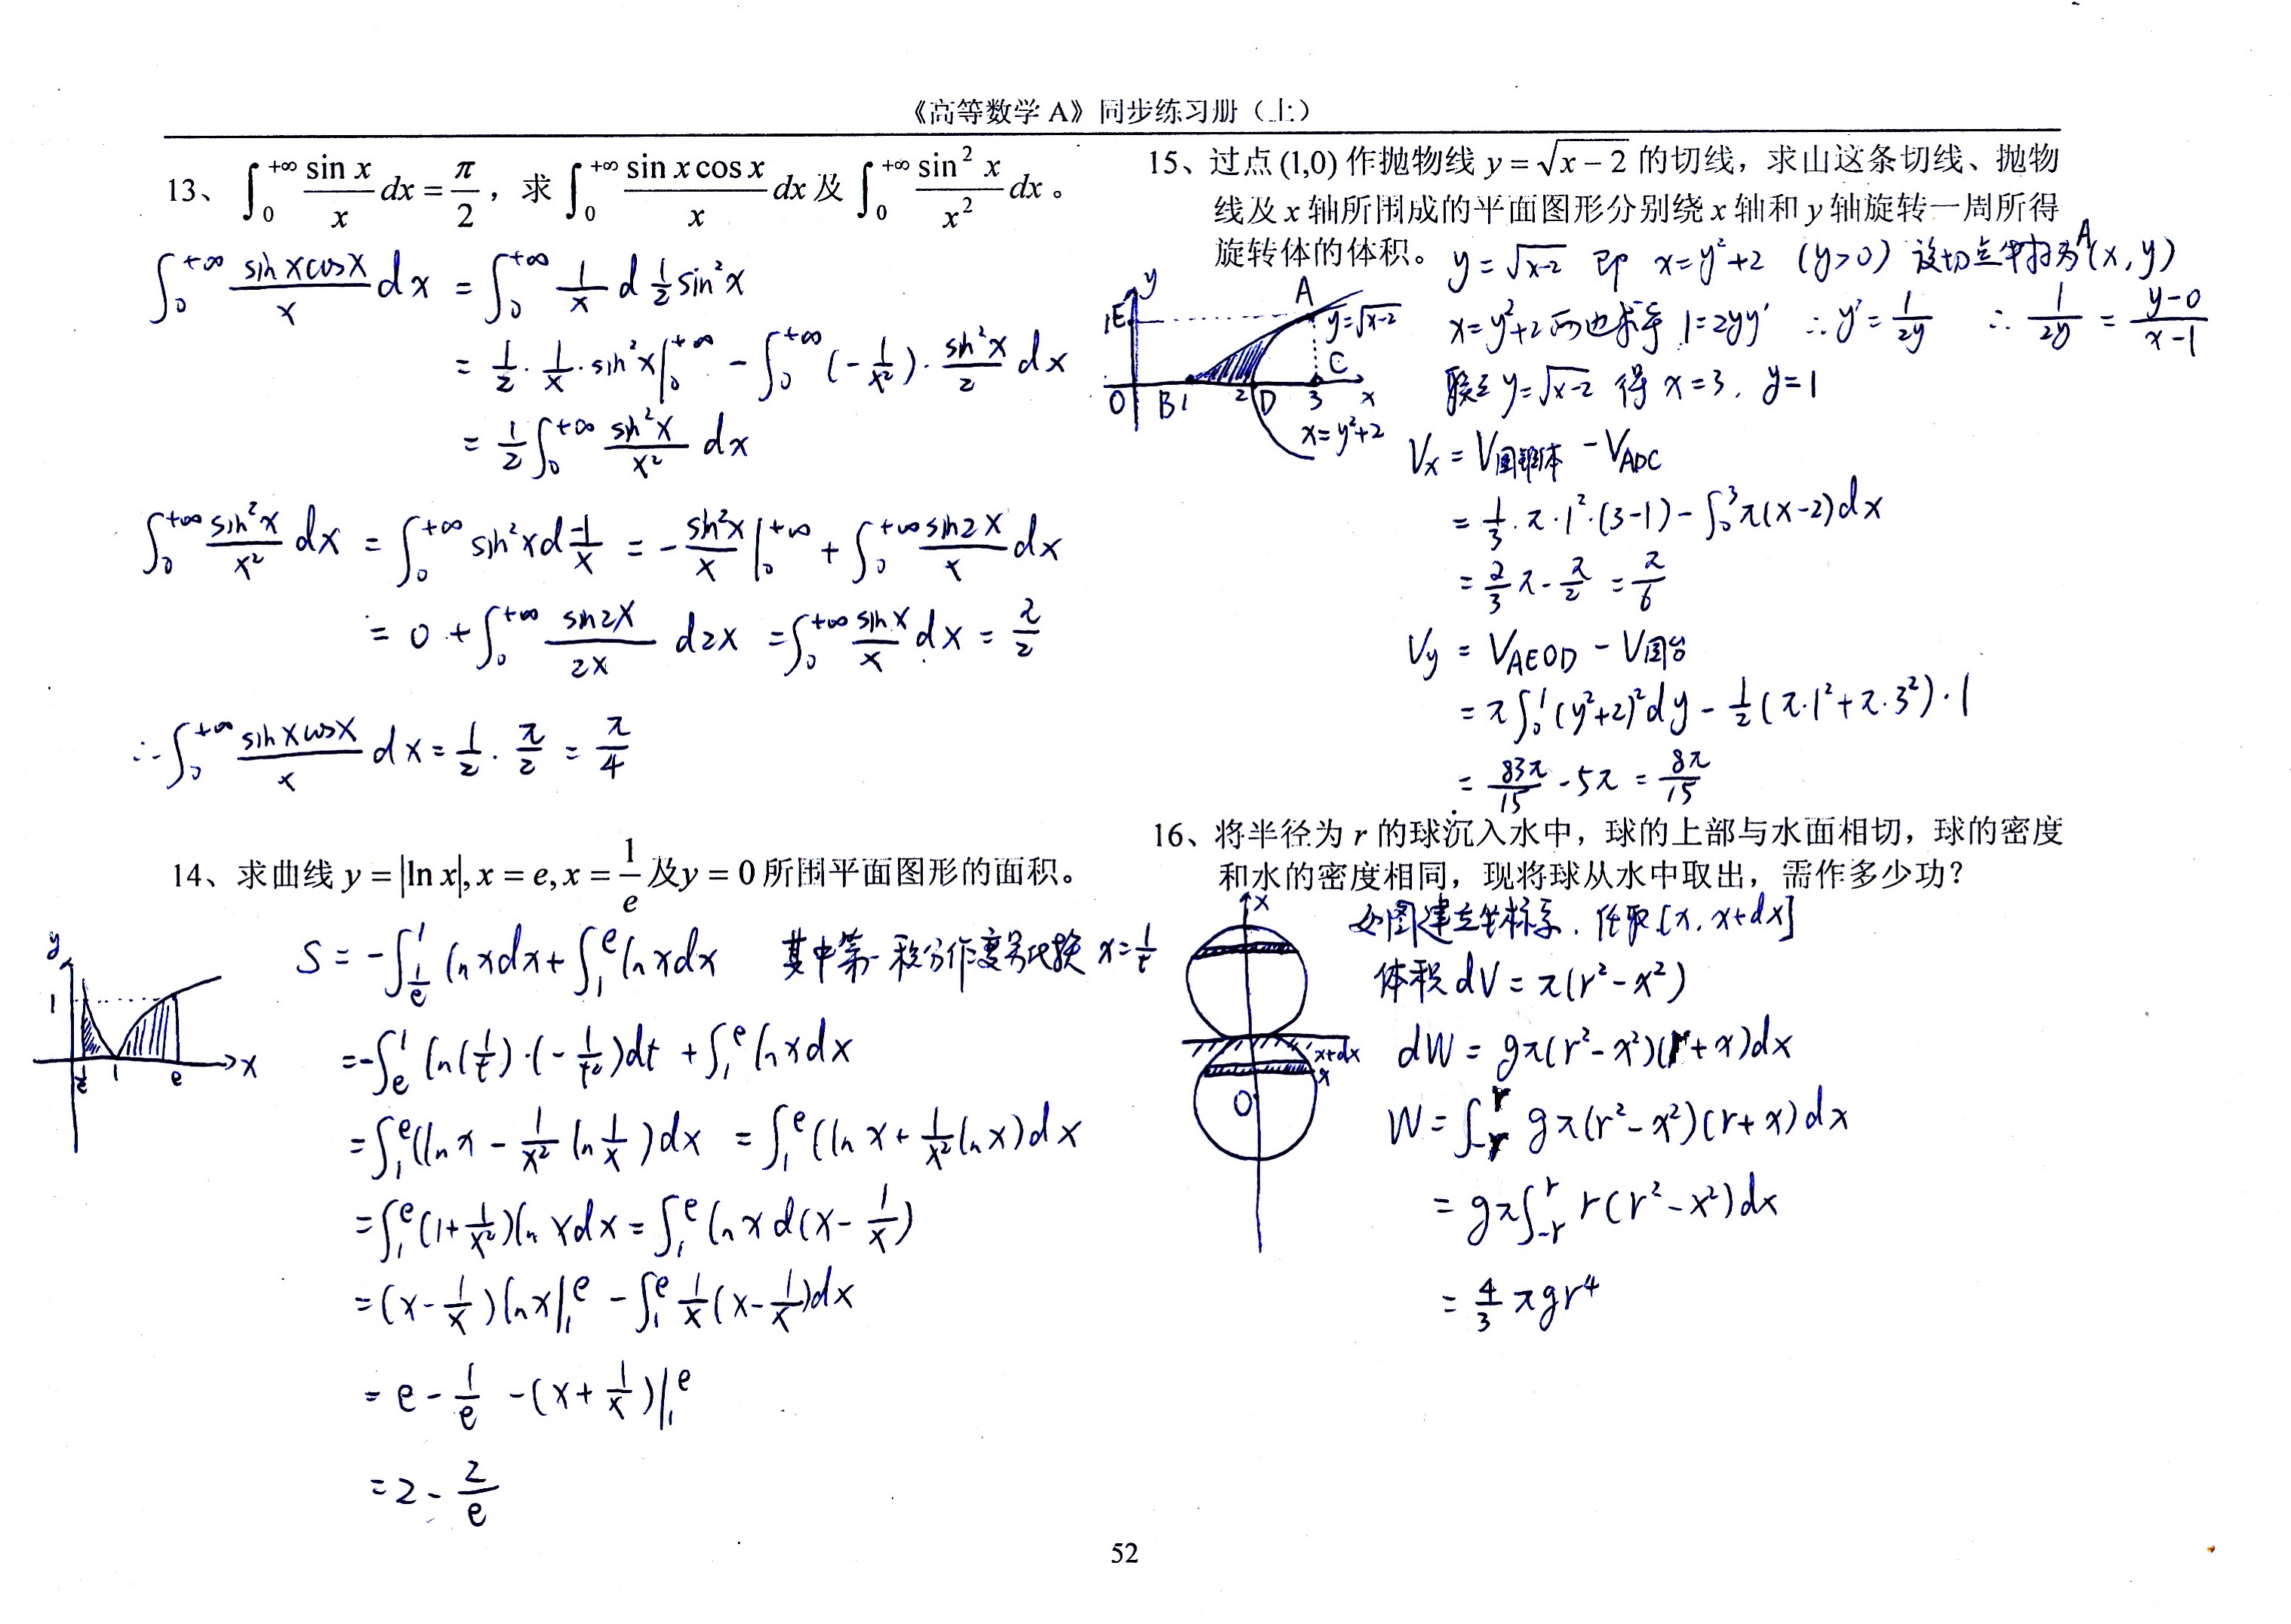 《高等数学 A》同步练习册（上）
13、∫₀^{+∞} sin x / x dx = π/2，求 ∫₀^{+∞} sin x cos x / x dx 及 ∫₀^{+∞} sin² x / x² dx。
∫₀^{+∞} sin x cos x / x dx = ∫₀^{+∞} 1/x d 1/2 sin²x
= 1/2 · 1/x · sin²x |₀^{+∞} - ∫₀^{+∞} (-1/x²) · sin²x / 2 dx
= 1/2 ∫₀^{+∞} sin²x / x² dx
∫₀^{+∞} sin²x / x² dx = ∫₀^{+∞} sin²x d -1/x = - sin²x / x |₀^{+∞} + ∫₀^{+∞} sin2x / x dx
= 0 + ∫₀^{+∞} sin2x / 2x d2x = ∫₀^{+∞} sin x / x dx = π/2
∴ ∫₀^{+∞} sin x cos x / x dx = 1/2 · π/2 = π/4
14、求曲线 y = |ln x|, x = e, x = 1/e 及 y = 0 所围平面图形的面积。
y
1
1/e 1 e x
S = -∫_{1/e}^1 ln x dx + ∫₁^e ln x dx 其中第一积分作变量代换 x = 1/t
= -∫_e^1 ln(1/t) · (-1/t²) dt + ∫₁^e ln x dx
= ∫₁^e (ln x - 1/x² ln 1/x) dx = ∫₁^e (ln x + 1/x² ln x) dx
= ∫₁^e (1 + 1/x²) ln x dx = ∫₁^e ln x d(x - 1/x)
= (x - 1/x) ln x |₁^e - ∫₁^e 1/x (x - 1/x) dx
= e - 1/e - (x + 1/x) |₁^e
= 2 - 2/e
15、过点 (1,0) 作抛物线 y = √(x-2) 的切线，求由这条切线、抛物
线及 x 轴所围成的平面图形分别绕 x 轴和 y 轴旋转一周所得
旋转体的体积。
y = √(x-2) 即 x = y²+2 (y>0) 设切点坐标为 A(x, y)
x = y²+2 两边求导 1 = 2yy' ∴ y' = 1/2y ∴ 1/2y = (y-0)/(x-1)
联立 y = √(x-2) 得 x = 3, y = 1
y
1 E A y = √(x-2)
C
O B 1 2 D 3 x
x = y²+2
Vx = V圆锥体 - V_ADC
= 1/3 · π · 1² · (3-1) - ∫₂³ π(x-2) dx
= 2/3 π - π/2 = π/6
Vy = V_AEOD - V圆台
= π ∫₀¹ (y²+2)² dy - 1/2 (π·1² + π·3²) · 1
= 83π/15 - 5π = 8π/15
16、将半径为 r 的球沉入水中，球的上部与水面相切，球的密度
和水的密度相同，现将球从水中取出，需作多少功？
x
x+dx
x
O
如图建立坐标系. 任取 [x, x+dx]
体积 dV = π(r² - x²)
dW = gπ(r² - x²)(r + x) dx
W = ∫_{-r}^r gπ(r² - x²)(r + x) dx
= gπ ∫_{-r}^r r(r² - x²) dx
= 4/3 πgr⁴
52